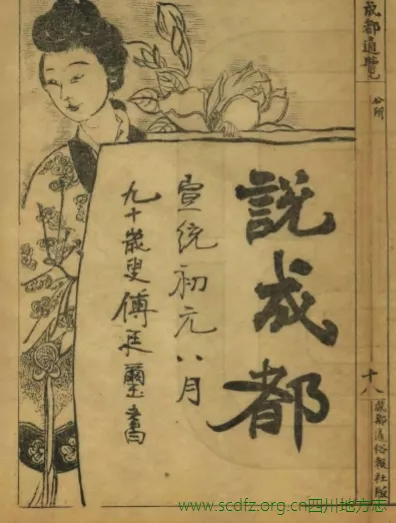 說成都
宣統初元八月
九十歲叟傅廷璽書
成都通覽
公所
十八
成都通俗報社版
www.scdfz.org.cn四川地方志